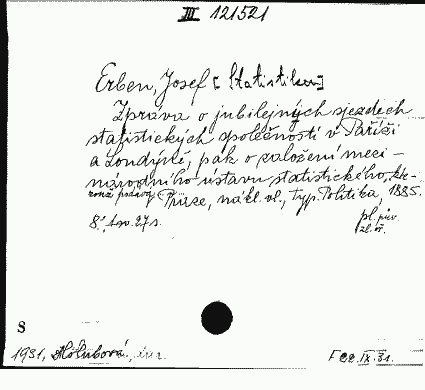 III 121521
Erben, Josef [Statistiker]
Zpráva o jubilejných sjezdech
statistických společností v Paříži
a Londýně, pak o založení meci-
národního ústavu statistického, kte-
rouž podává Praze, nákl. vl., typ. Politika, 1885.
8°, 1 sv. 27 s.
pl. pův.
zl. oř.
S
1931, Holubová, inv.
IX. 31.